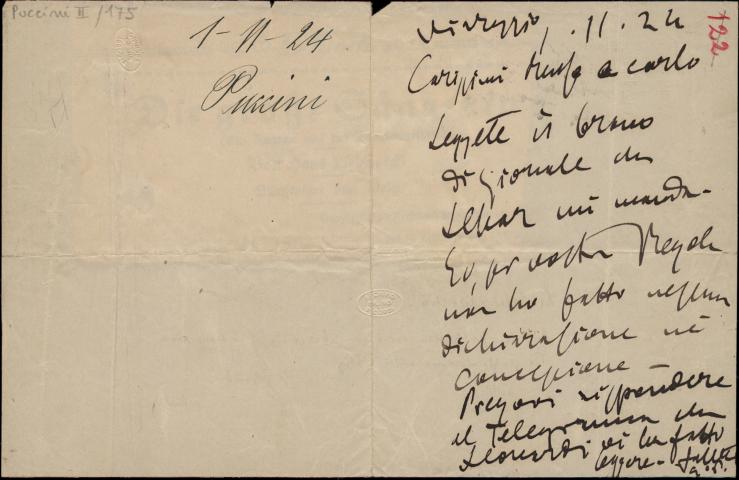 Puccini II / 175
1-11-24
Puccini
122
Viareggio, 1.11.24
Carissimi Renzo e Carlo
Leggete il brano
di giornale che
Lehar mi manda.
Io, per vostra Regola
non ho fatto nessuna
dichiarazione nè
concessione -
Pregovi rispondere
al Telegramma che
Leonardi vi ha fatto
leggere - Saluti